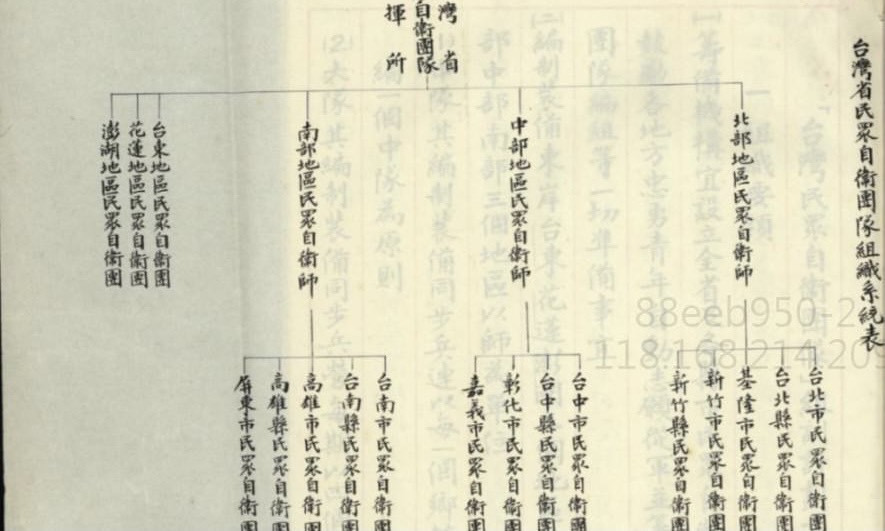 台灣省民眾自衛團隊組織系統表
灣省
自衛團隊
揮所
北部地區民眾自衛師
台北市民眾自衛團
台北縣民眾自衛團
基隆市民眾自衛團
新竹市民眾自衛團
新竹縣民眾自衛團
中部地區民眾自衛師
台中市民眾自衛團
台中縣民眾自衛團
彰化市民眾自衛團
嘉義市民眾自衛團
南部地區民眾自衛師
台南市民眾自衛團
台南縣民眾自衛團
高雄市民眾自衛團
高雄縣民眾自衛團
屏東市民眾自衛團
台東地區民眾自衛團
花蓮地區民眾自衛團
澎湖地區民眾自衛團
88eeb950-2
118.168.214.209